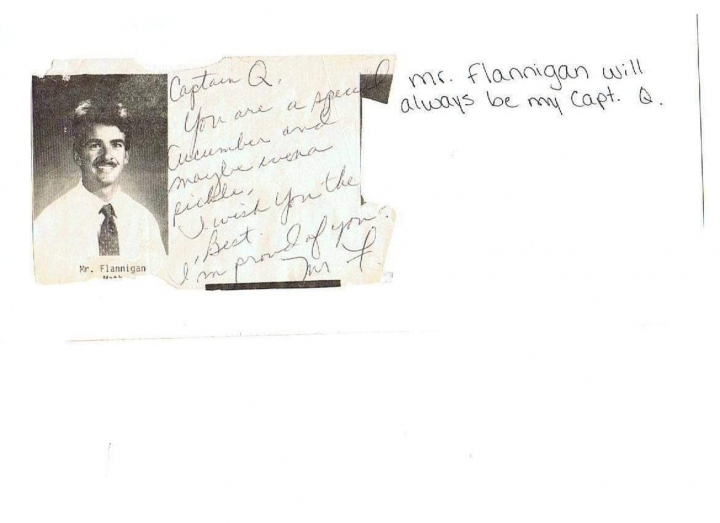 Captain Q,
You are a special
Cucumber and
maybe even a
pickle,
I wish you the
Best.
I'm proud of you.
Mr F.
Mr. Flannigan
Math
Mr. Flannigan will
always be my Capt. Q.